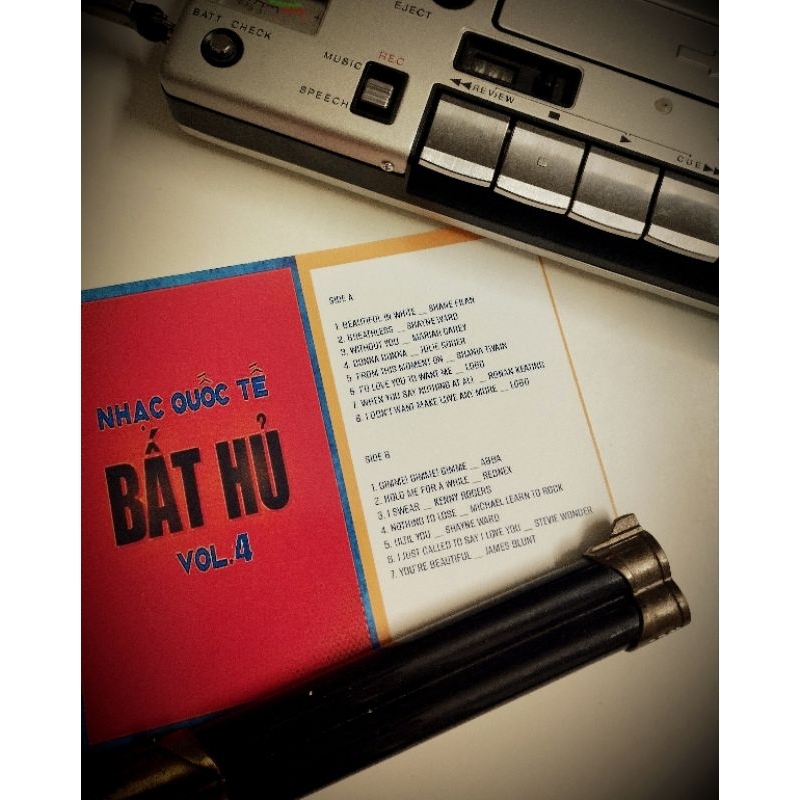 BATT CHECK
EJECT
MUSIC
REC
SPEECH
REVIEW
CUE
NHẠC QUỐC TẾ
BẤT HỦ
VOL.4
SIDE A
1. BEAUTIFUL IN WHITE __ SHANE FILAN
2. BREATHLESS __ SHAYNE WARD
3. WITHOUT YOU __ MARIAH CAREY
4. DONNA DONNA __ JULIE
5. FROM THIS MOMENT ON __ SHANIA TWAIN
6. I'D LOVE YOU TO WANT ME __ LOBO
7. WHEN YOU SAY NOTHING AT ALL __ RONAN KEATING
8. I DON'T WANT MAKE LOVE ANY MORE __ LOBO
SIDE B
1. GIMME! GIMME! GIMME __ ABBA
2. HOLD ME FOR A WHILE __ REDNEX
3. I SWEAR __ KENNY ROGERS
4. NOTHING TO LOSE __ MICHAEL LEARN TO ROCK
5. UNTIL YOU __ SHAYNE WARD
6. I JUST CALLED TO SAY I LOVE YOU __ STEVIE WONDER
7. YOU'RE BEAUTIFUL __ JAMES BLUNT